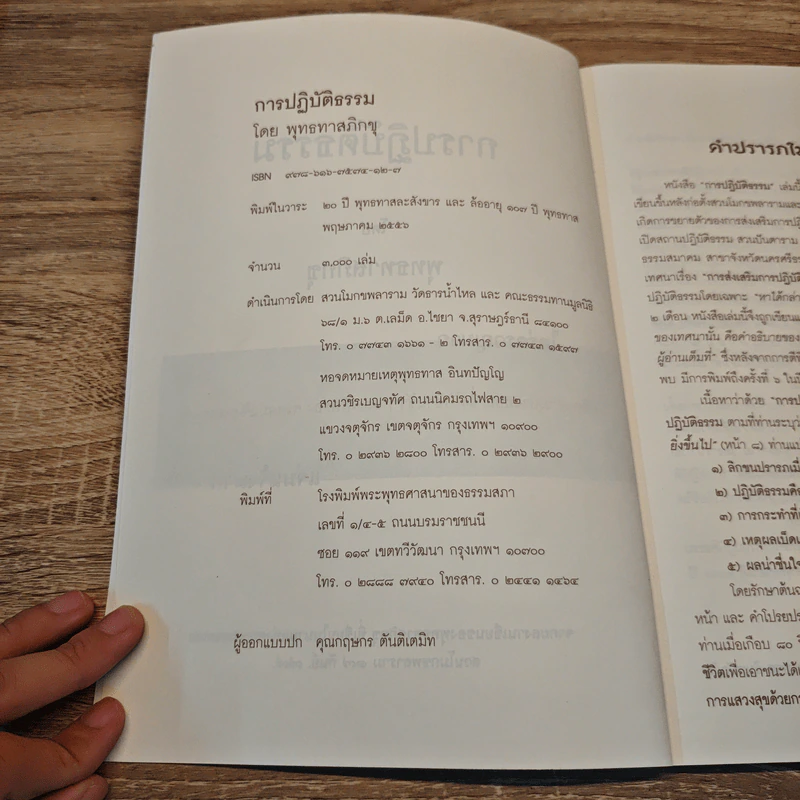 การปฏิบัติธรรม
โดย พุทธทาสภิกขุ
ISBN ๙๗๘-๖๑๖-๗๕๗๔-๑๒-๗
พิมพ์ในวาระ ๒๐ ปี พุทธทาสละสังขาร และ ล้ออายุ ๑๐๗ ปี พุทธทาส
พฤษภาคม ๒๕๕๖
จำนวน ๓,๐๐๐ เล่ม
ดำเนินการโดย สวนโมกขพลาราม วัดธารน้ำไหล และ คณะธรรมทานมูลนิธิ
๖๘/๑ ม.๖ ต.เลม็ด อ.ไชยา จ.สุราษฎร์ธานี ๘๔๑๐๐
โทร. ๐ ๗๗๔๓ ๑๖๖๑ - ๒ โทรสาร. ๐ ๗๗๔๓ ๑๕๙๗
หอจดหมายเหตุพุทธทาส อินทปัญโญ
สวนวชิรเบญจทัศ ถนนนิคมรถไฟสาย ๒
แขวงจตุจักร เขตจตุจักร กรุงเทพฯ ๑๐๙๐๐
โทร. ๐ ๒๙๓๖ ๒๘๐๐ โทรสาร. ๐ ๒๙๓๖ ๒๙๐๐
พิมพ์ที่ โรงพิมพ์พระพุทธศาสนาของธรรมสภา
เลขที่ ๑/๔-๕ ถนนบรมราชชนนี
ซอย ๑๑๙ เขตทวีวัฒนา กรุงเทพฯ ๑๐๗๐๐
โทร. ๐ ๒๘๘๘ ๗๙๔๐ โทรสาร. ๐ ๒๔๔๑ ๑๔๖๔
ผู้ออกแบบปก คุณกฤษกร ตันติเตมิท
คำปรารภใน
หนังสือ "การปฏิบัติธรรม" เล่มนี้
เขียนขึ้นหลังก่อตั้งสวนโมกขพลารามและ
เกิดการขยายตัวของการส่งเสริมการปฏิบั
เปิดสถานปฏิบัติธรรม สวนปันตาราม
ธรรมสมาคม สาขาจังหวัดนครศรีธร
เทศนาเรื่อง "การส่งเสริมการปฏิบัติ
ปฏิบัติธรรมโดยเฉพาะ "หาได้กล่าว
๒ เดือน หนังสือเล่มนี้จึงถูกเขียนแล
ของเทศนานั้น คือคำอธิบายของ
ผู้อ่านเต็มที่" ซึ่งหลังจากการตีพิ
พบ มีการพิมพ์ถึงครั้งที่ ๖ ในปี
เนื้อหาว่าด้วย "การป
ปฏิบัติธรรม ตามที่ท่านระบุว่
ยิ่งขึ้นไป" (หน้า ๘) ท่านแบ
๑) ลิกขนปรารภเมื
๒) ปฏิบัติธรรมคือ
๓) การกระทำที่เ
๔) เหตุผลเบ็ดเ
๕) ผลน่าชื่นใจ
โดยรักษาต้นฉ
หน้า และ คำโปรยปร
ท่านเมื่อเกือบ ๘๐ ปี
ชีวิตเพื่อเอาชนะได้เ
การแสวงสุขด้วยกา